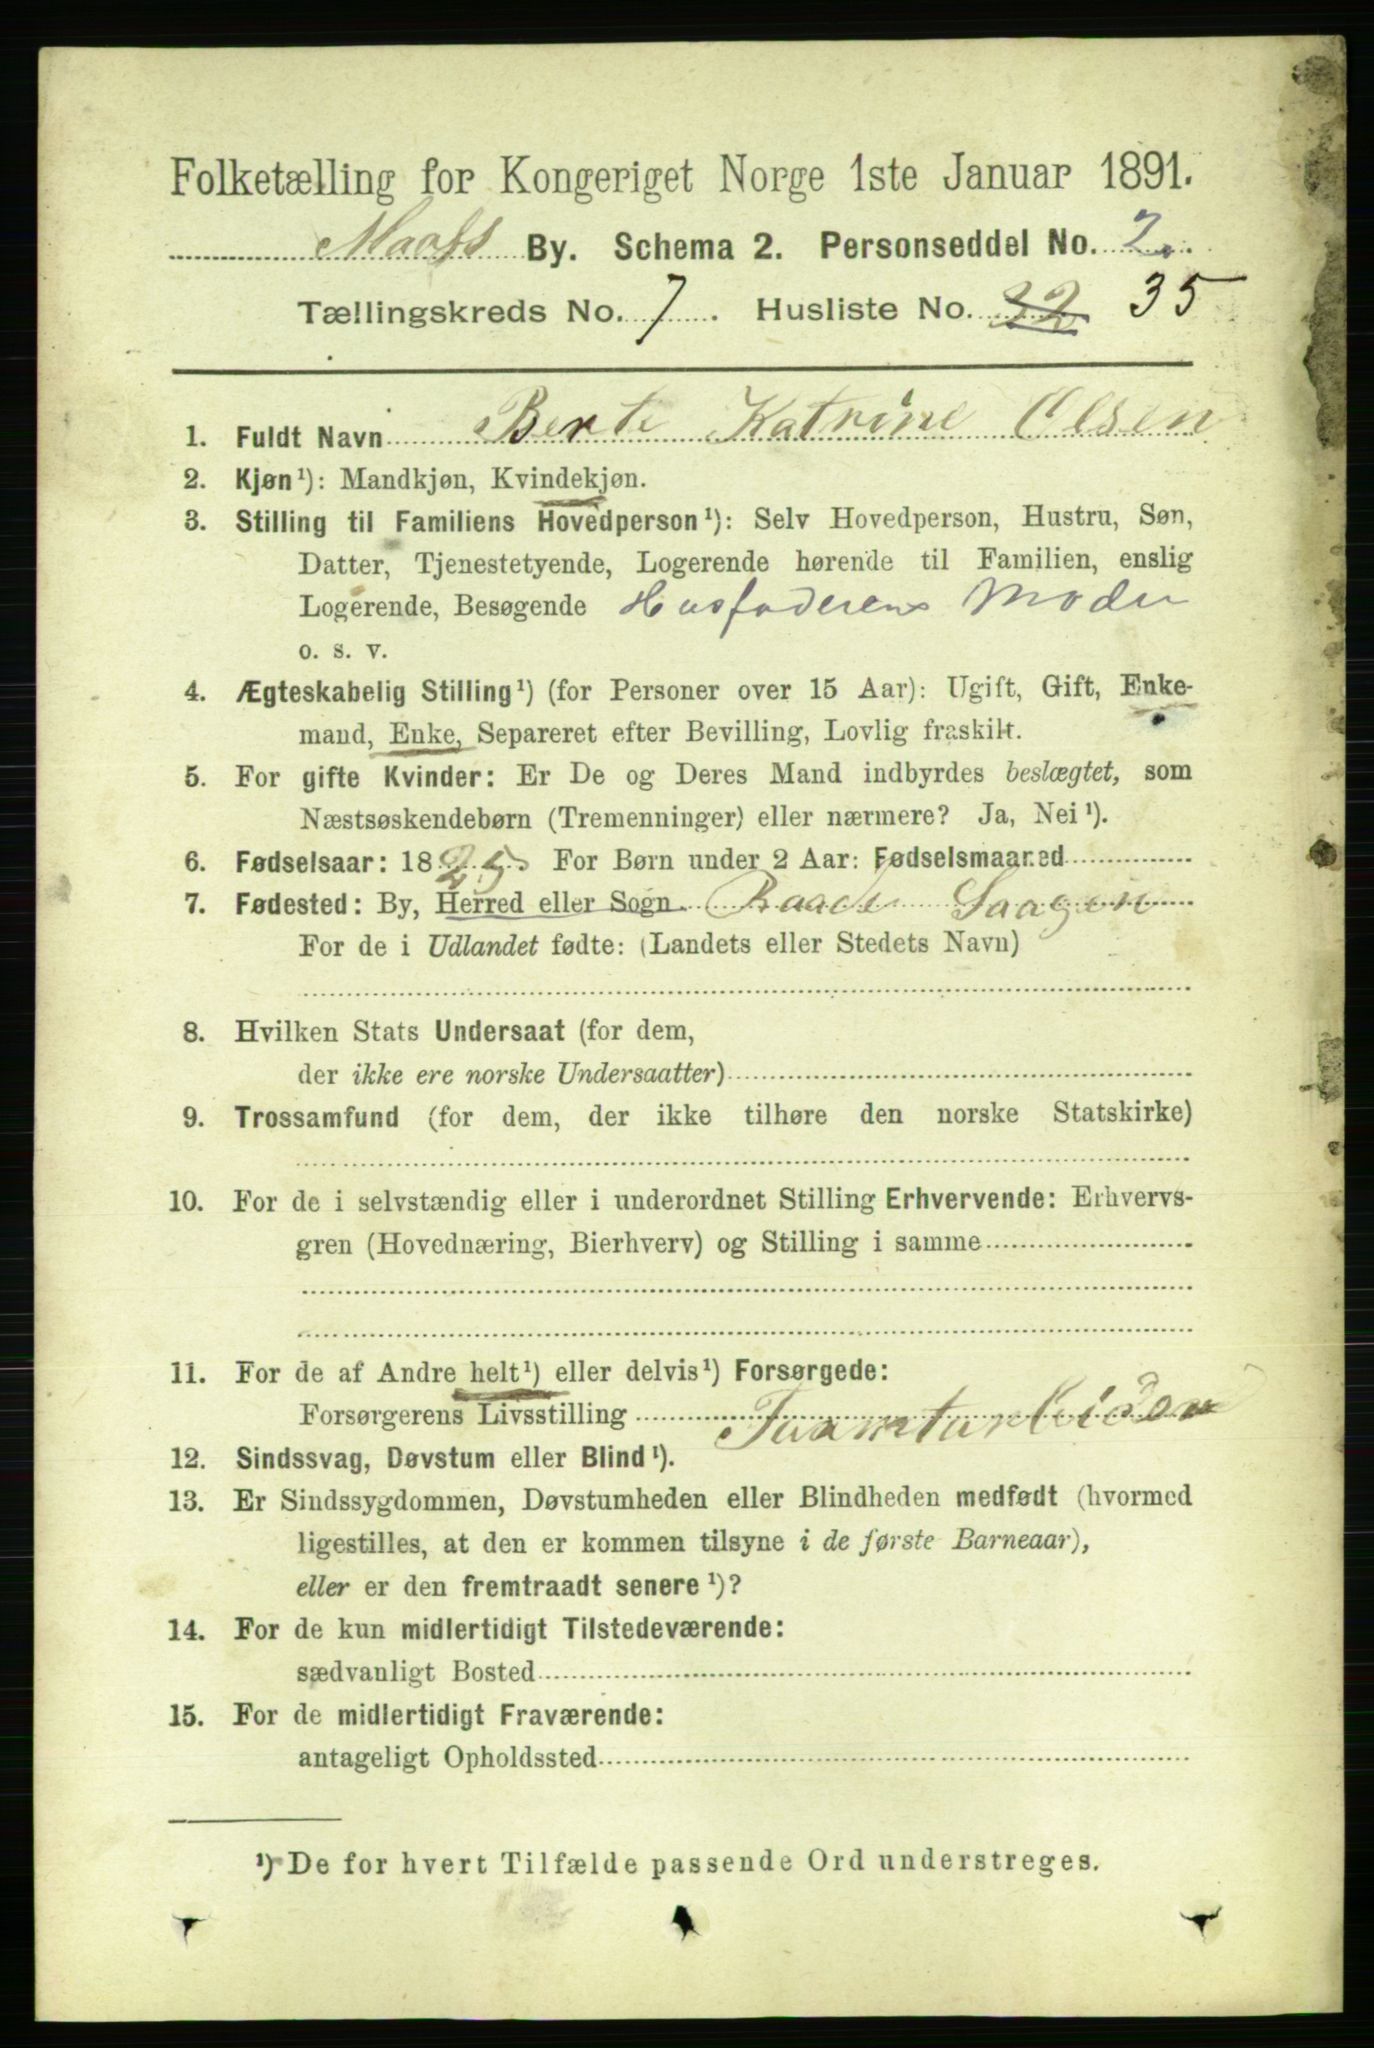 Folketælling for Kongeriget Norge 1ste Januar 1891.
By. Schema 2. Personseddel No. 2.
Tællingskreds No. 7. Husliste No. 32 35
1. Fuldt Navn Berte Katrine Olsen
2. Kjøn¹): Mandkjøn, Kvindekjøn.
3. Stilling til Familiens Hovedperson¹): Selv Hovedperson, Hustru, Søn,
Datter, Tjenestetyende, Logerende hørende til Familien, enslig
Logerende, Besøgende Husfaderens Moder
o. s. v.
4. Ægteskabelig Stilling¹) (for Personer over 15 Aar): Ugift, Gift, Enke-
mand, Enke, Separeret efter Bevilling, Lovlig fraskilt.
5. For gifte Kvinder: Er De og Deres Mand indbyrdes beslægtet, som
Næstsøskendebørn (Tremenninger) eller nærmere? Ja, Nei¹).
6. Fødselsaar: 1825. For Børn under 2 Aar: Fødselsmaaned
7. Fødested: By, Herred eller Sogn Raade Saagen
For de i Udlandet fødte: (Landets eller Stedets Navn)
8. Hvilken Stats Undersaat (for dem,
der ikke ere norske Undersaatter)
9. Trossamfund (for dem, der ikke tilhøre den norske Statskirke)
10. For de i selvstændig eller i underordnet Stilling Erhvervende: Erhvervs-
gren (Hovednæring, Bierhverv) og Stilling i samme
11. For de af Andre helt¹) eller delvis¹) Forsørgede:
Forsørgerens Livsstilling
12. Sindssvag, Døvstum eller Blind¹).
13. Er Sindssygdommen, Døvstumheden eller Blindheden medfødt (hvormed
ligestilles, at den er kommen tilsyne i de første Barneaar),
eller er den fremtraadt senere¹)?
14. For de kun midlertidigt Tilstedeværende:
sædvanligt Bosted
15. For de midlertidigt Fraværende:
antageligt Opholdssted
¹) De for hvert Tilfælde passende Ord understreges.